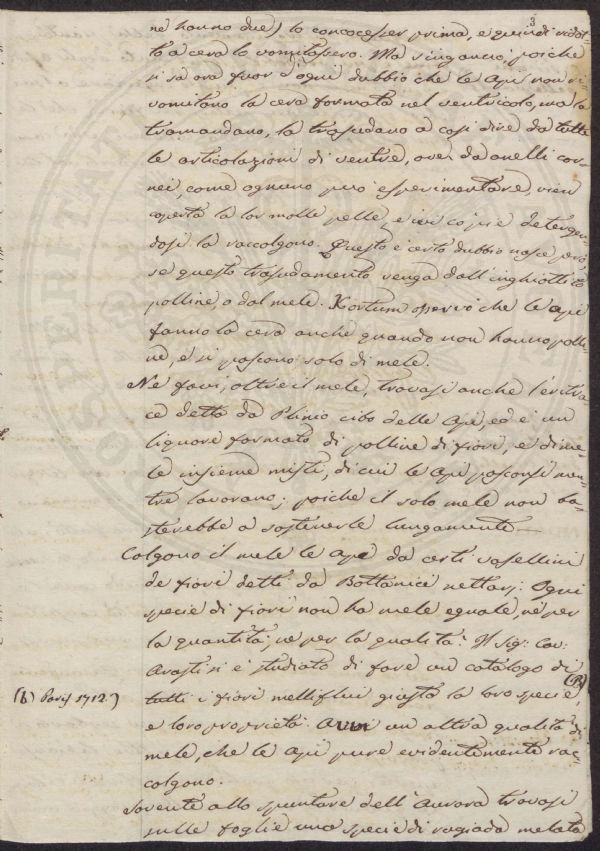 3
ne hanno due) lo concocesser prima, e quindi ridot-
to a cera lo vomitassero. Ma s'ingannò; poiche
si sa ora fuor d'ogni dubbio che le Api non ri-
vomitano la cera formata nel ventricolo, ma la
tramandano, la trasudano a così dire da tutte
le articolazioni di ventre, over da anelli cor-
nei, come ognuno può esperimentare, vien
coperta la lor molle pelle, e ivi co' piè detergen-
dosi la raccolgono. Questo è certo dubbio nasce però,
se questo trasudamento venga dall'inghiottito
polline, o dal mele. Kortum osservò che le api
fanno la cera anche quando non hanno polli-
ne, e si pascono solo di mele.
Ne favi, oltre il mele, trovasi anche l'eritra
ce detto da Plinio cibo delle Api, ed è un
liquore formato di polline di fiori, e di me-
le insieme misti, di cui le api pasconsi men-
tre lavorano; poiche il solo mele non ba-
sterebbe a sostenerle lungamente
Colgono il mele le Api da certi vasellini
de fiori detti da Bottanici nettarj. Ogni
specie di fiori non ha mele eguale, nè per
la quantità, ne per la qualità. Il Sig: Cav:
si è studiato di fare un catalogo di
tutti i fiori melliflui giusta la loro specie,
(b) Parif 1712.)
e loro proprietà. un altra qualità di
mele, che le api pure evidentemente rac-
colgono.
Sovente allo spuntare dell'Aurora trovasi
sulle foglie una specie di rugiada melata